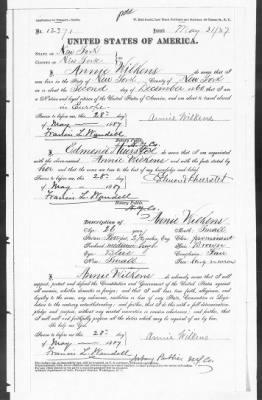 No. 12371 Issued May 31/87
UNITED STATES OF AMERICA.
STATE OF New York
COUNTY OF New York
I, Annie Wilkens do swear that I
was born in the State of New York, County of New York
on the second day of December 1860 that I am
in Europe.
Sworn to before me, this 28th day
of May 1887 Annie Wilkens
Francis L. Wandell
Notary Public
N.Y. Co.
I, Edmund do swear that I am acquainted
with the above-named Annie Wilkens and with the facts stated by
her and that the same are true to the best of my knowledge and belief.
Sworn to before me, this 28th day
of May 1887 Edmund
Francis L. Wandell
Notary Public
N.Y. Co.
Description of Annie Wilkens
Age: 26 years Mouth: Small
Stature: Chin: prominent
Forehead: medium Hair: Brown
Eyes: Blue Complexion: Fair
Nose: Small Face:
I, Annie Wilkens do solemnly swear that I will
support, protect and defend the Constitution and Government of the United States
against all enemies, whether domestic or foreign; and that I will bear true faith, allegiance, and
loyalty to the same, any ordinance, resolution or law of any State, Convention or Legis-
lature to the contrary notwithstanding; and further, that I do this with a full determination,
pledge and purpose, without any mental reservation or evasion whatsoever; and further, that
I will well and faithfully perform all the duties which may be required of me by law.
So help me God.
Sworn to before me, this 28th day
of May 1887 Annie Wilkens
Francis L. Wandell
Notary Public N.Y. Co.